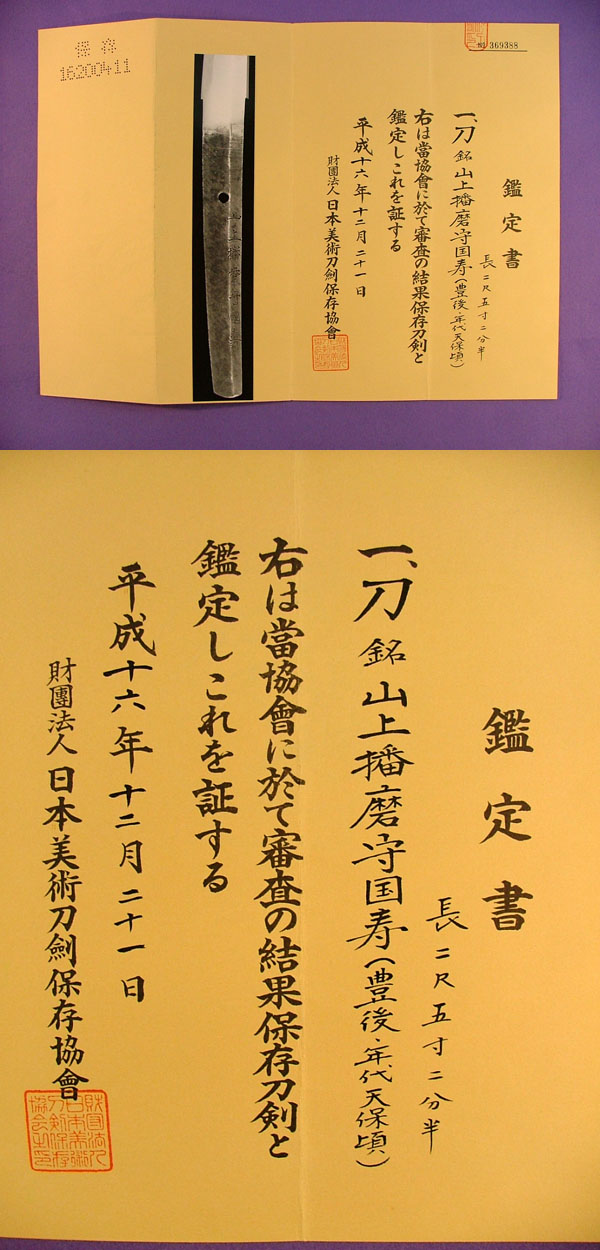 保存
16200411
№ 369388
鑑定書
長二尺五寸二分半
一、刀 銘 山上播磨守国寿(豊後・年代天保頃)
右は當協會に於て審査の結果保存刀剣と
鑑定しこれを証する
平成十六年十二月二十一日
財團法人 日本美術刀劍保存協會
鑑定書
長二尺五寸二分半
一、刀 銘 山上播磨守国寿(豊後・年代天保頃)
右は當協會に於て審査の結果保存刀剣と
鑑定しこれを証する
平成十六年十二月二十一日
財團法人 日本美術刀劍保存協會
財団法人
日本美術
刀剣保存
協会之印